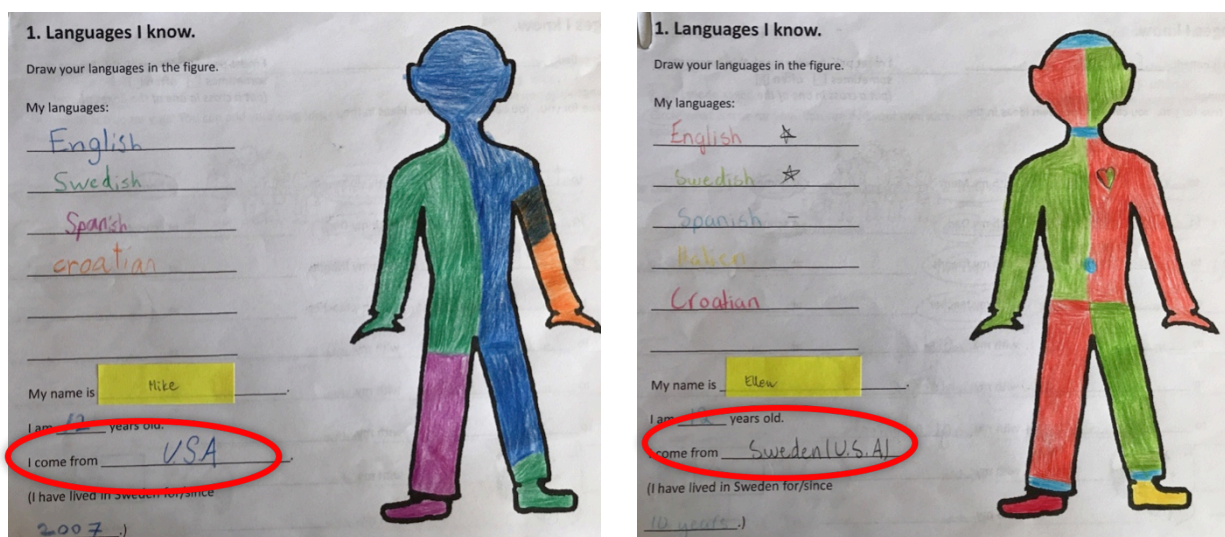 1. Languages I know.
Draw your languages in the figure.
My languages:
English
Swedish
Spanish
croatian
My name is Mike.
I am 12 years old.
I come from USA.
(I have lived in Sweden for/since
2007.)
1. Languages I know.
Draw your languages in the figure.
My languages:
English
Swedish
Spanish -
Croatian
My name is Ellen.
I am 12 years old.
I come from Sweden (U.S.A)
(I have lived in Sweden for/since
10 years.)